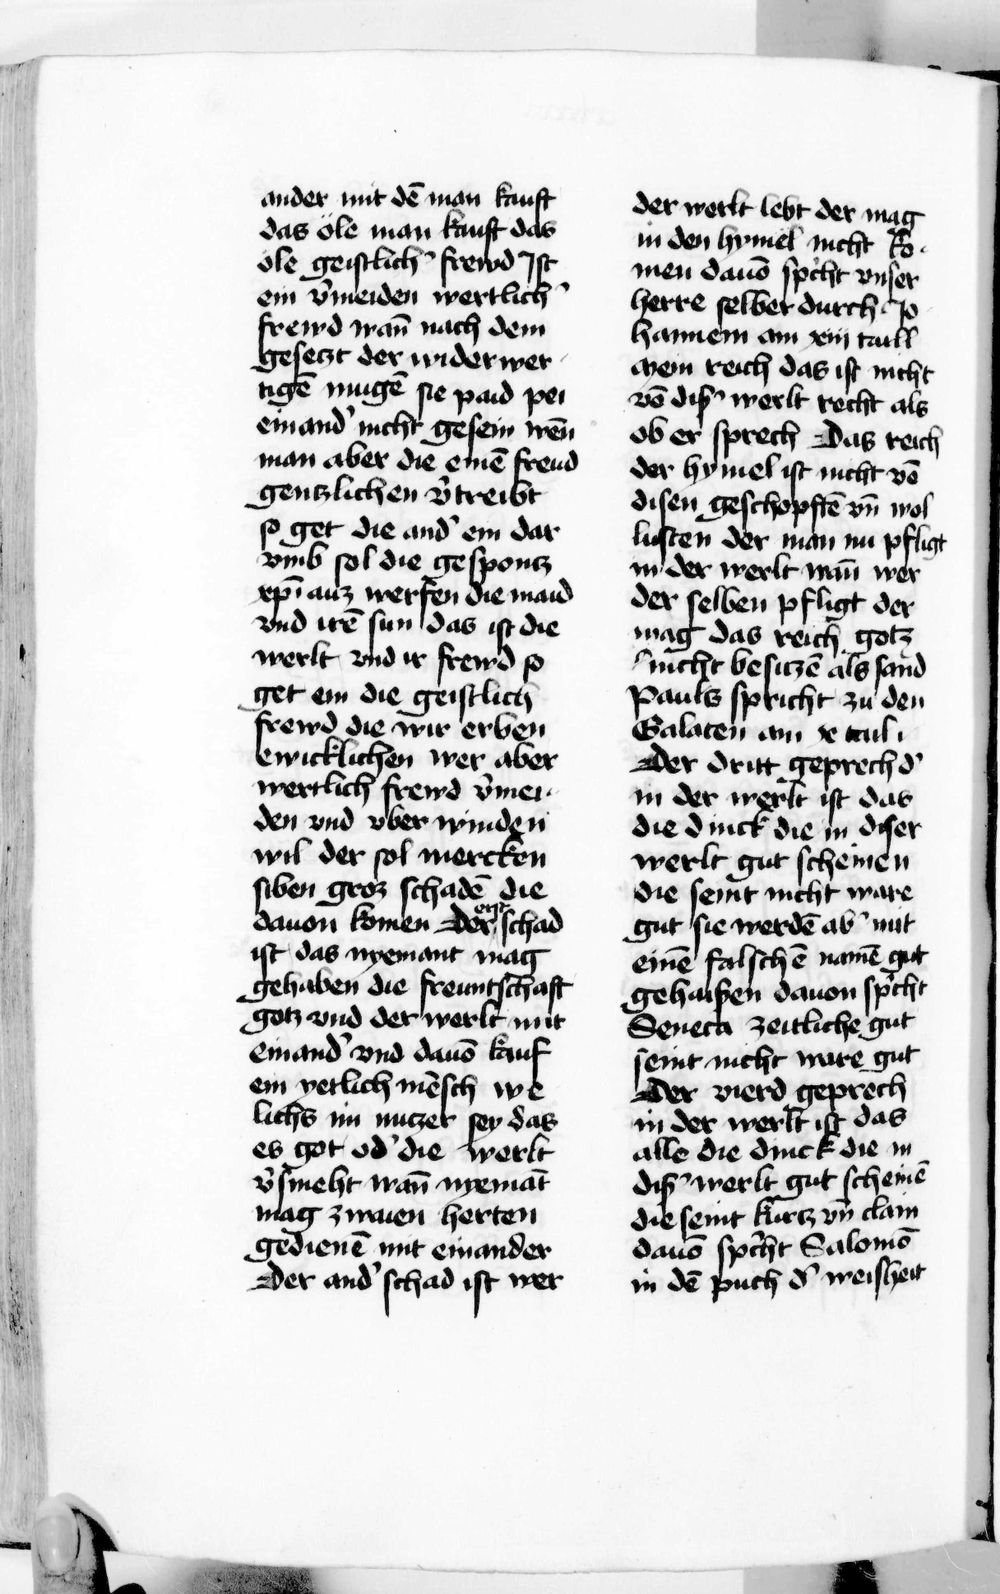 ander mit dē man kauft
das öle man kauft das
öle geistlich' frewd Ist
ein v'meiden wertlich'
frewd wan̄ nach dem
gesetzt der wider wer
tigē mugē sie paid pei
einand' nicht gesein wen̄
man aber die einē freud
gentzlichen v'treibt
so get die and' ein dar
vmb sol die gesponcz
xp̄i auz werfen die maid
vnd irē sun das ist die
werlt vnd ir frewd so
get ein die geistlich
frewd die wir erben
ewicklichen wer aber
wertlich frewd v'mei
den vnd vber winden
wil der sol mercken
siben groz schadē die
dauon komen Der erst schad
ist das nyemant mag
gehaben die freuntschaft
gotz vnd der werlt mit
einand' vnd dauō kauf
ein yetlich mēsch we
lichs im nutzer sey das
es got od' die werlt
v'smeht wan̄ nyemāt
mag zwaien herren
gedienē mit einander
Der and' schad ist wer
der werlt lebt der mag
in den hymel nicht ko
men dauō sp'cht vnser
herre selber durch Jo
hannem am xiij
Mein reich das ist nicht
vō diß' werlt recht als
ob er sprech Das reich
der hymel ist nicht vō
disen geschopftē vn̄ wol
lusten der man nu pfligt
in der werlt wan̄ wer
der selben pfligt der
mag das reich gotz
nicht besitzē als sand
Pauls spricht zu den
Galaten am
Der dritt geprech d'
in der werlt ist das
die dinck die in diser
werlt gut scheinen
die seint nicht ware
gut sie werdē ab' mit
einē falschē namē gut
gehaißen dauon sp'cht
Seneca zeitliche gut
seint nicht ware gut
Der vierd geprech
in der werlt ist das
alle die dinck die in
diß' werlt gut scheinē
die seint kurtz vn̄ clain
dauō sp'cht Salomō
in dē puch d' weisheit